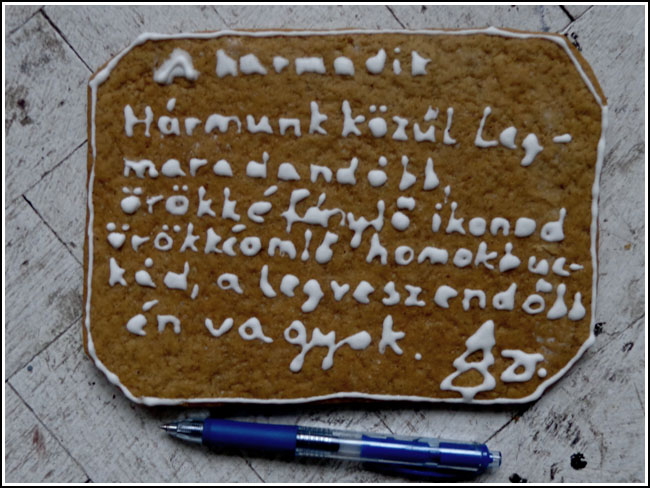 A harmadik
Hármunk közűl leg-
maradandóbb,
örökké fénylő ikonod
örökkéomló homokbuc-
kád, a legveszendőbb
én vagyok.